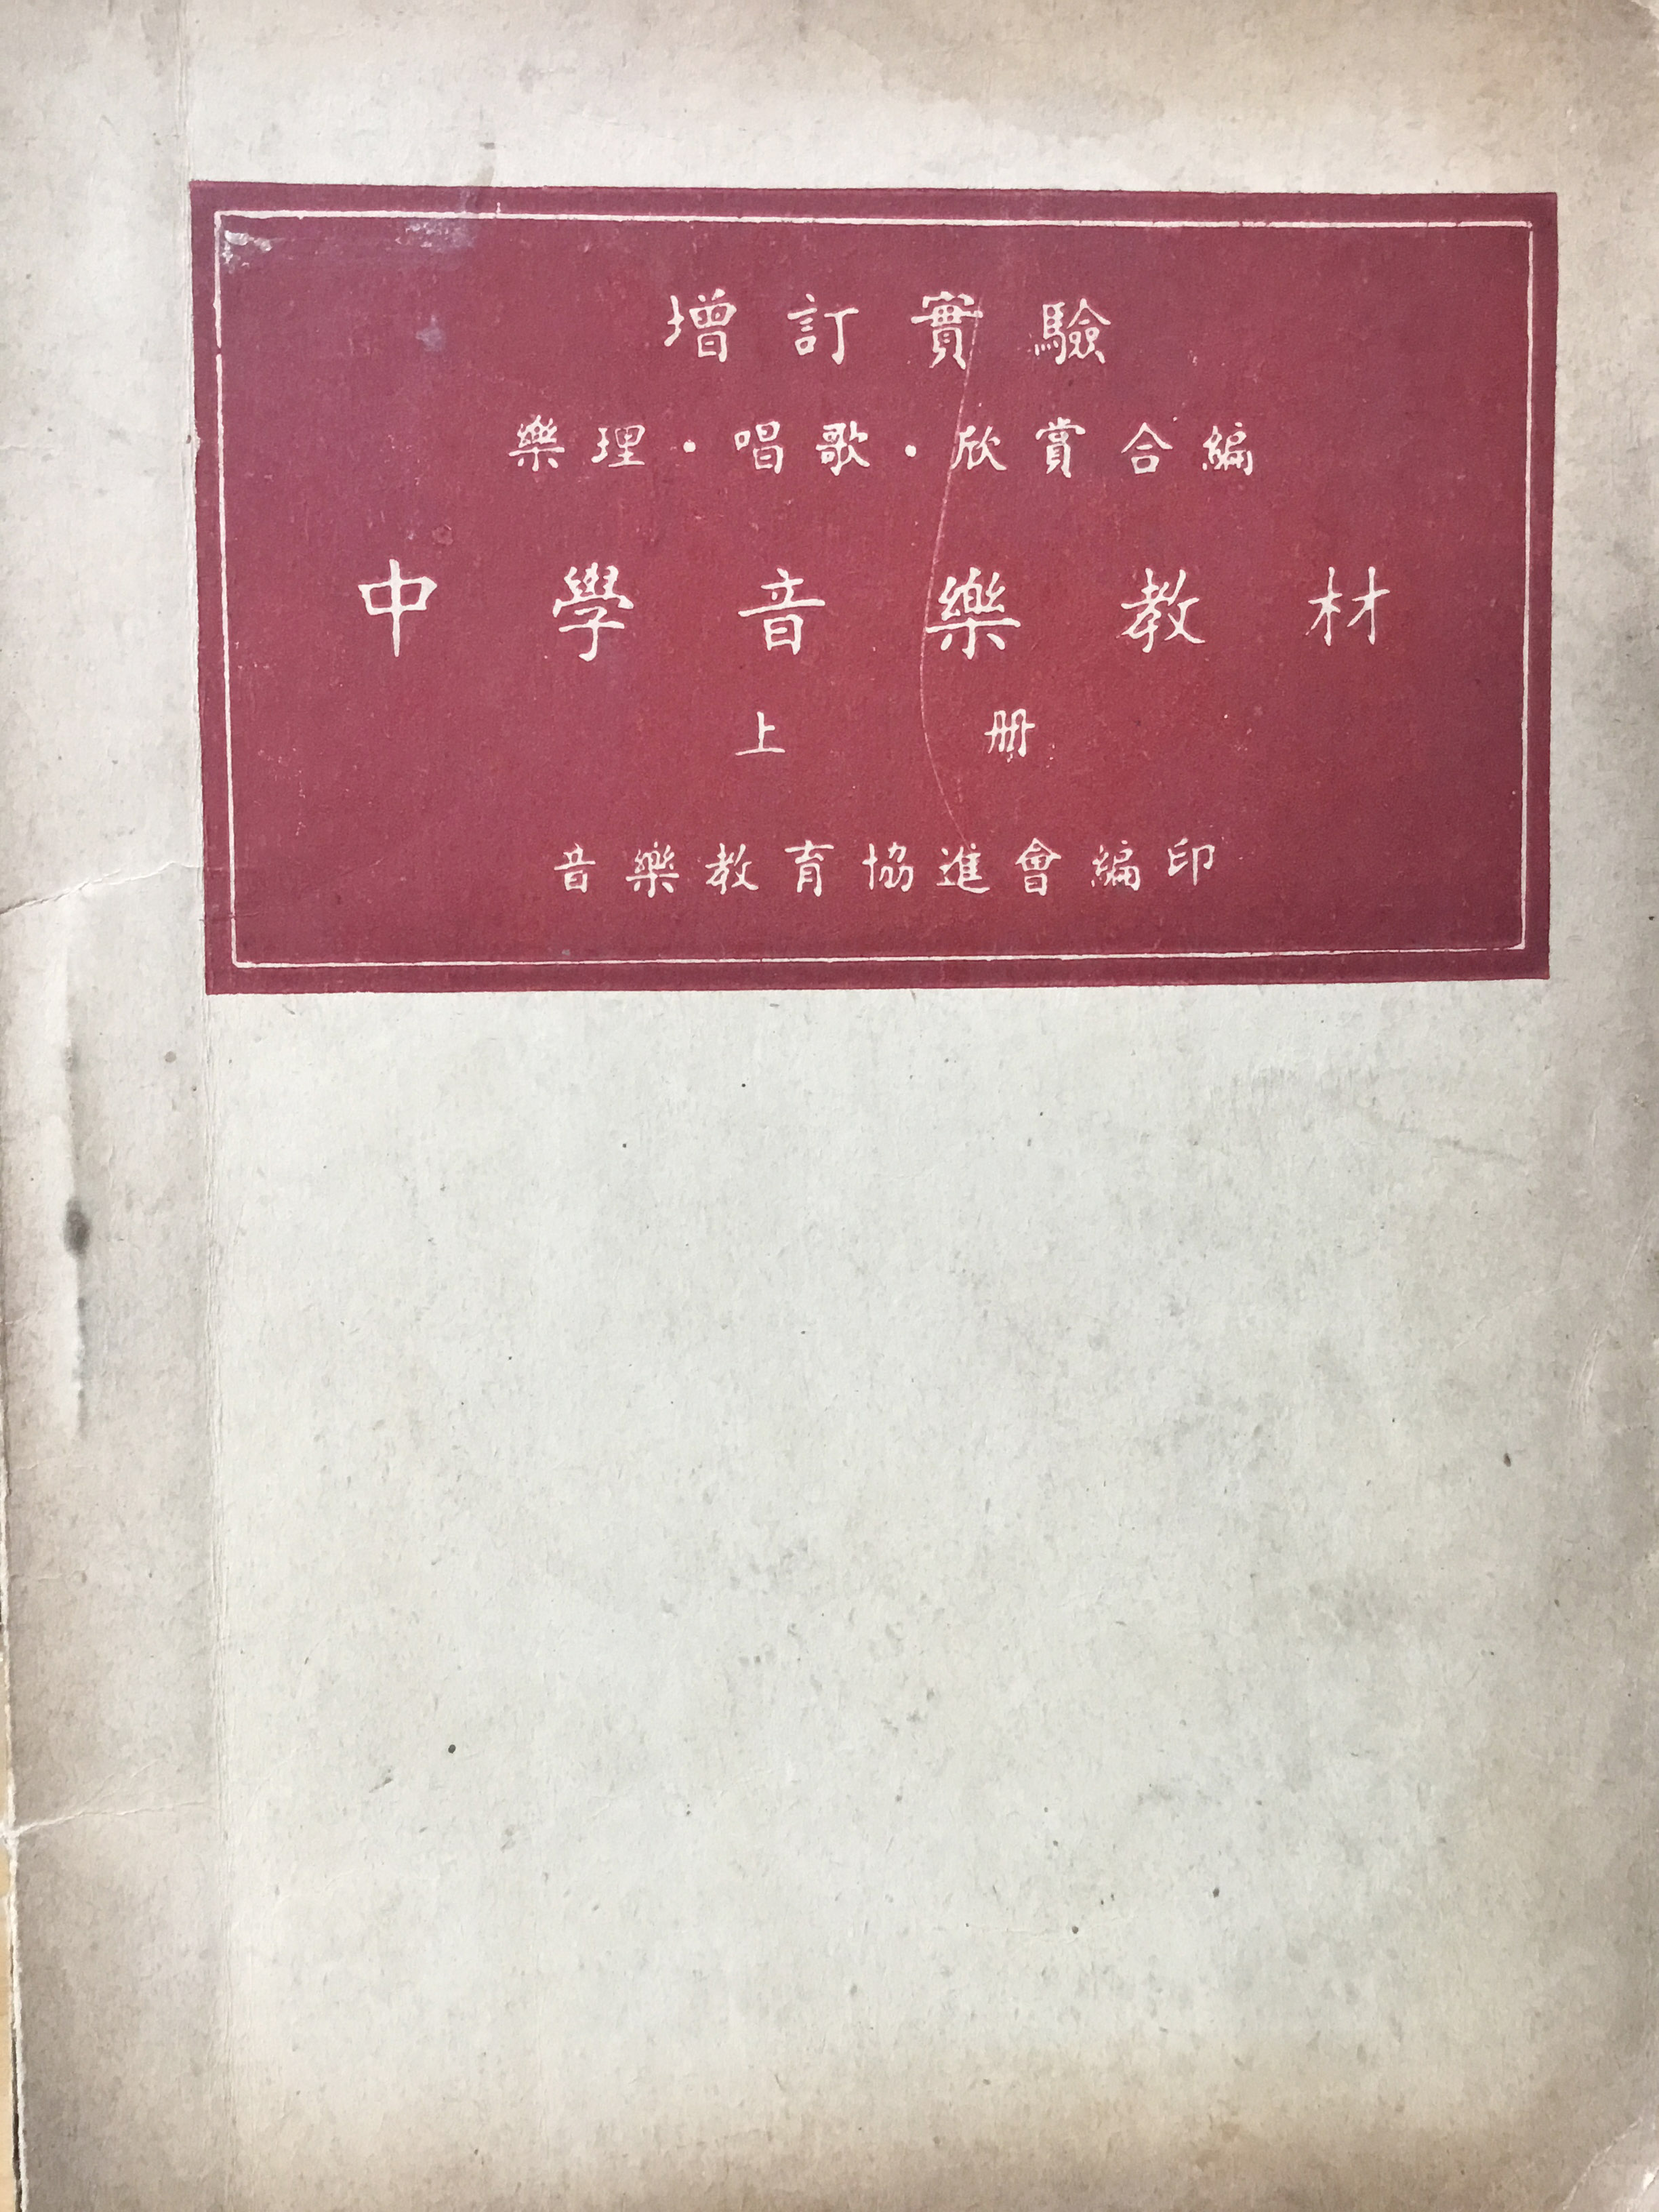 增訂實驗
樂理·唱歌·欣賞合編
中學音樂教材
上冊
音樂教育協進會編印